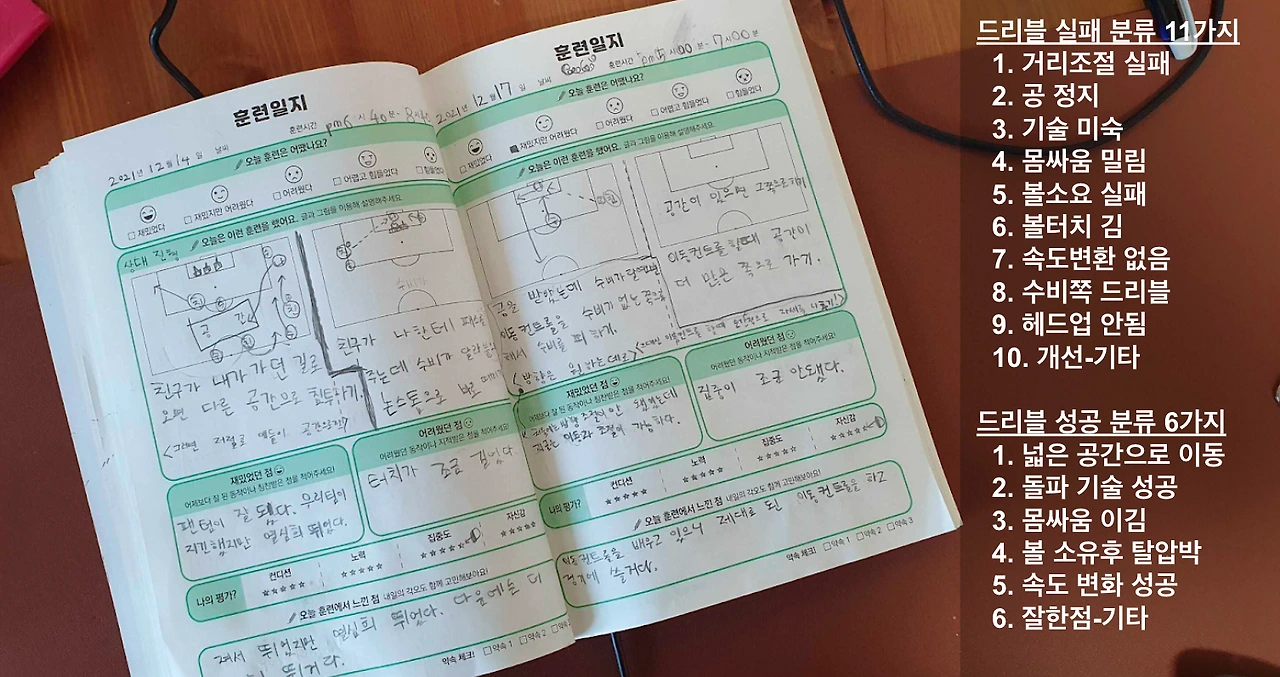 훈련일지
훈련시간 pm 6시 40분-8시
2021년 12월 14일 날씨
오늘 훈련은 어땠나요?
재밌었다
재밌지만 어려웠다
어려웠다
어렵고 힘들었다
힘들었다
오늘은 이런 훈련을 했어요. 글과 그림을 이용해 설명해주세요.
상대 진형
공 간
친구가 내가 가던 길로
오면 다른 공간으로 침투하기.
친구가 나한테 패스를
주는데 수비가
논스톱으로
재밌었던 점
어제보다 잘 된 동작이나 칭찬받은 점을 적어주세요!
팬터이 잘 됐다. 우리팀이
지긴했지만 열심히 뛰었다.
어려웠던 점
어려웠던 동작이나 지적받은 점을 적어주세요!
터치가 조금 길었다
나의 평가?
컨디션
노력
집중도
자신감
오늘 훈련에서 느낀 점 내일의 각오도 함께 고민해보아요!
져서 뛰었지만 열심히 뛰었다. 다음에는 더
뛰거다.
약속 체크! 약속 1 약속 2 약속
훈련일지
훈련시간 pm 5시 00분-7시 00분
2021년 12월 17일 날씨
오늘 훈련은 어땠나요?
재밌었다
재밌지만 어려웠다
어려웠다
어렵고 힘들었다
힘들었다
오늘은 이런 훈련을 했어요. 글과 그림을 이용해 설명해주세요.
공을 받았는데 수비가
이동컨트롤을 수비가 없는 쪽을
해서 수비를 피하기.
공간이 있으면 그쪽으로 가기
이동컨트롤을 할 때 공간이
더 많은 쪽으로 가기.
재밌었던 점
어제보다 잘 된 동작이나 칭찬받은 점을 적어주세요!
조절이 안 됐었는데
지금은 이동과 조절이 가능하다.
어려웠던 점
어려웠던 동작이나 지적받은 점을 적어주세요!
집중이 조금 안됐다.
나의 평가?
컨디션
노력
집중도
자신감
오늘 훈련에서 느낀 점 내일의 각오도 함께 고민해보아요!
이동컨트롤을 배우고 있으니 제대로 된 이동컨트롤을 하고
경기에 쓸거다.
약속 체크! 약속 1 약속 2 약속 3
드리블 실패 분류 11가지
1. 거리조절 실패
2. 공 정지
3. 기술 미숙
4. 몸싸움 밀림
5. 볼소요 실패
6. 볼터치 김
7. 속도변환 없음
8. 수비쪽 드리블
9. 헤드업 안됨
10. 개선-기타
드리블 성공 분류 6가지
1. 넓은 공간으로 이동
2. 돌파 기술 성공
3. 몸싸움 이김
4. 볼 소유후 탈압박
5. 속도 변화 성공
6. 잘한점-기타